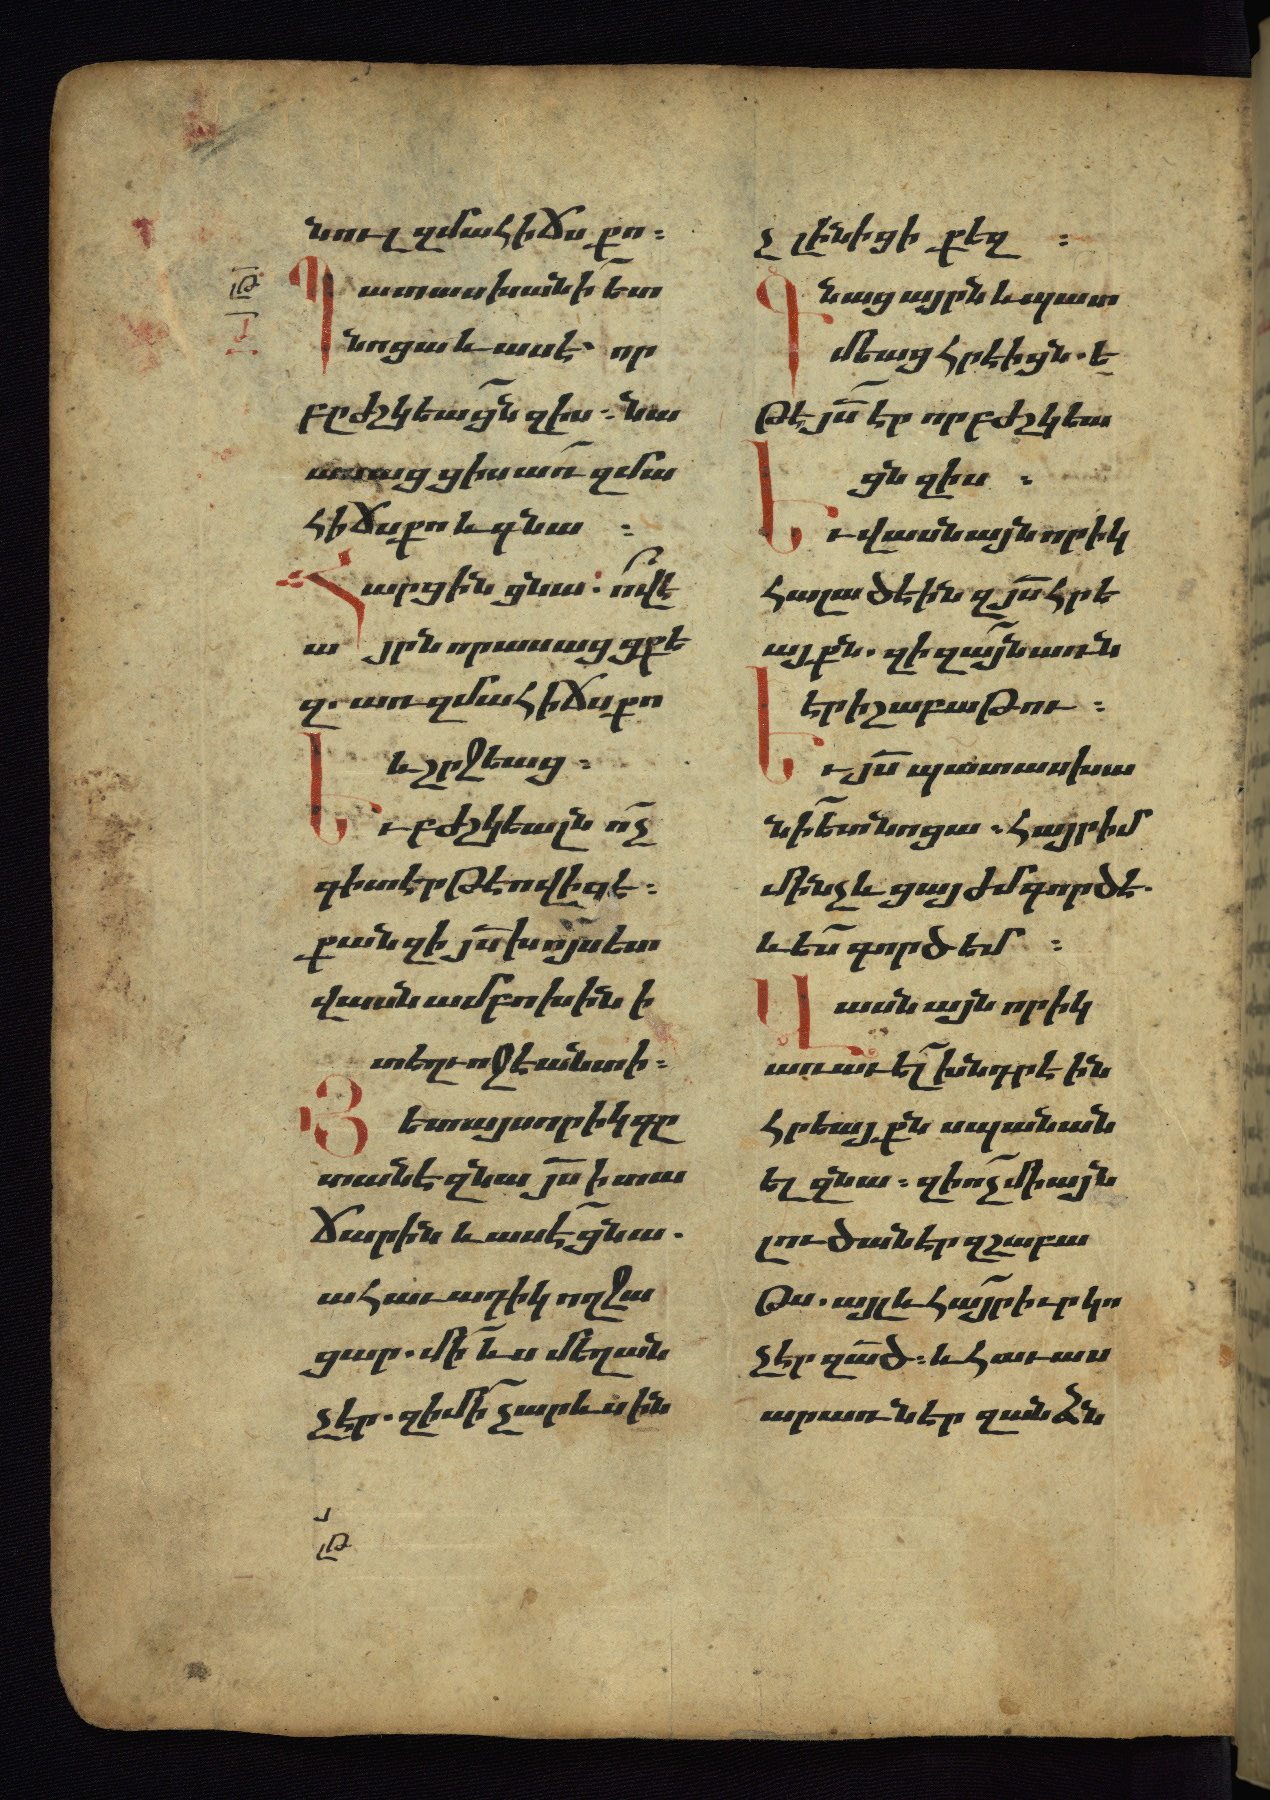 նուլ զմահիճս քո :
Պատասխանի ետ
նոցա և ասէ . որ
բըժշկեացն զիս : նա
ասաց ցիս առ զմա
հիճս քո և գնա :
Հարցին ցնա . ո՞վ է
այրն որ ասաց ցքե
զ . առ զմահիճս քո
և շրջեաց :
Եւ բժշկեալն ոչ
գիտէր թէ ով իցե :
քանզի յս խոյս ետ
վասն ամբոխին ի
տեղւոջէ անտի :
Յետ այսորիկ գը
տանէ զնա յս ի տա
ճարին և ասէ ցնա .
ահաւադիկ ողջա
ցար . մի ևս մեղան
չեր . զի մի չար ևս ին
չ լինիցի քեզ :
Գնաց այրն և պատ
մեաց հրէիցն . ե
թէ յս էր որ բժշկեա
ցն զիս :
Եւ վասն այնորիկ
հալածեին զյս հրե
այքն . զի զայն առն
երի շաբաթու :
Եւ յս պատասխա
նի ետ նոցա . հայր իմ
մինչև ցայժմ գործե .
և ես գործեմ :
Վասն այնորիկ
առաւել խնդրէին
հրեայքն սպանան
ել զնա : զի ոչ միայն
լուծանէր զշաբա
թս . այլ և հայր իւր կո
չէր զած : և հաւաս
ար առնէր զանձն
ԸԹ
Լ
ԸԹ